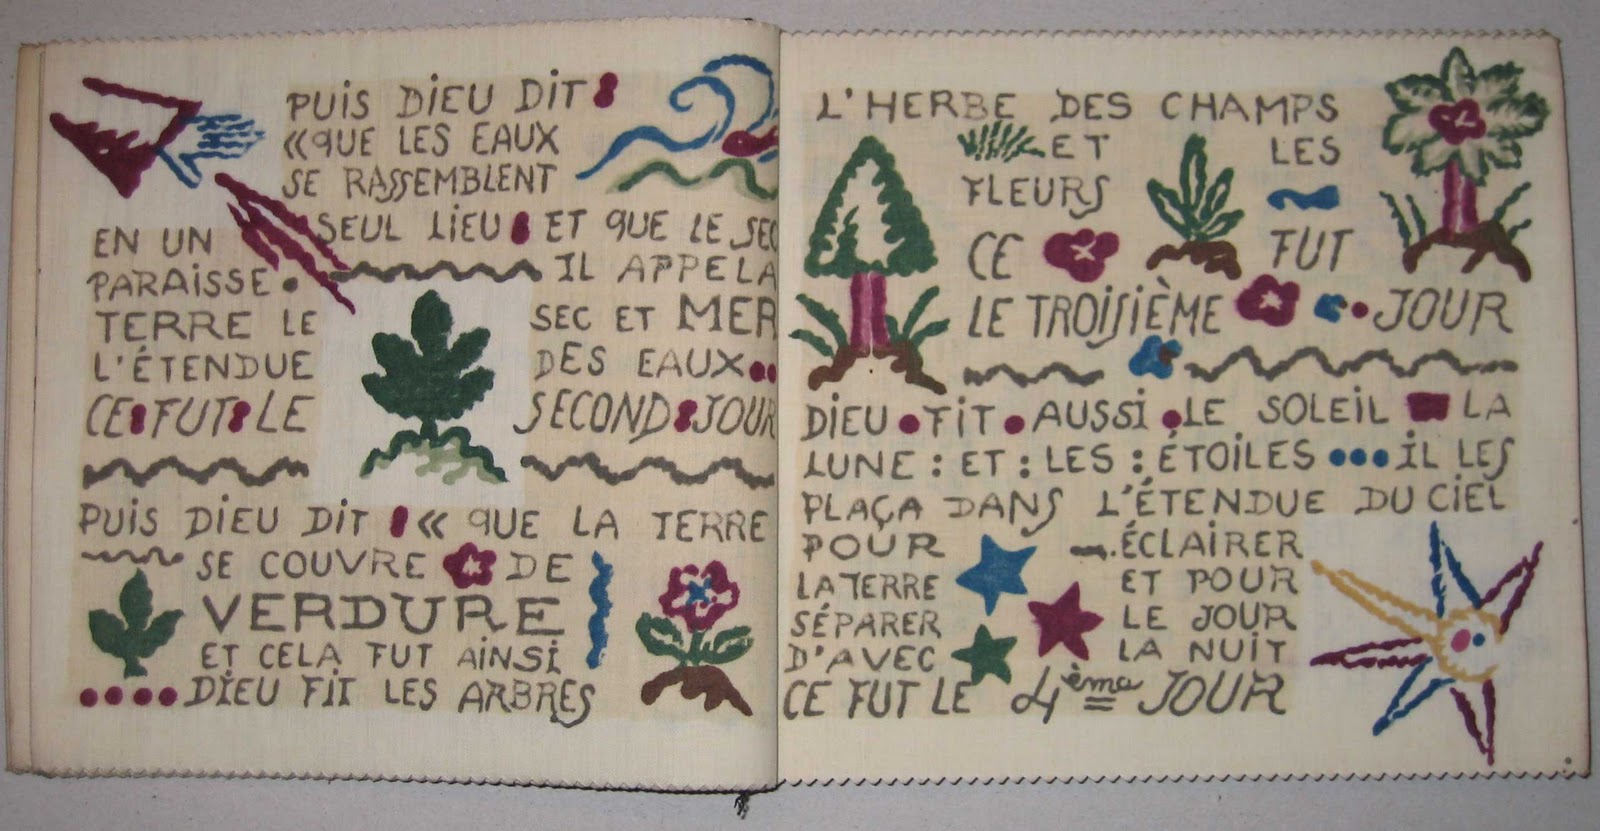 PUIS DIEU DIT :
«QUE LES EAUX
SE RASSEMBLENT
EN UN SEUL LIEU : ET QUE LE SEC
PARAISSE. IL APPELA
TERRE LE SEC ET MER
L'ÉTENDUE DES EAUX..
CE : FUT : LE SECOND : JOUR
PUIS DIEU DIT : « QUE LA TERRE
SE COUVRE DE
VERDURE
ET CELA FUT AINSI
.... DIEU FIT LES ARBRES
L'HERBE DES CHAMPS
ET LES
FLEURS
CE FUT
LE TROISIÈME JOUR
DIEU . FIT . AUSSI . LE SOLEIL LA
LUNE : ET : LES : ÉTOILES ... IL LES
PLAÇA DANS L'ÉTENDUE DU CIEL
POUR ÉCLAIRER
LA TERRE ET POUR
SÉPARER LE JOUR
D'AVEC LA NUIT
CE FUT LE 4ème JOUR